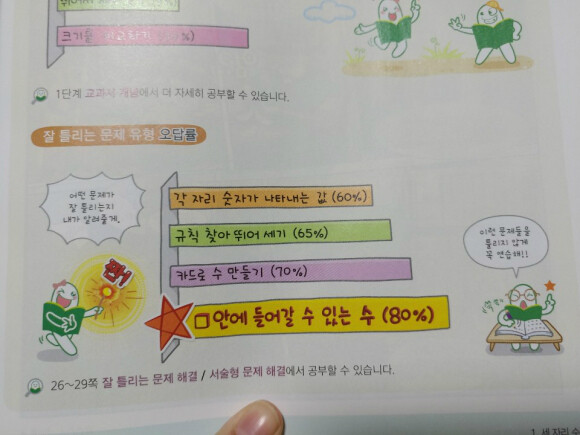 크기를 비교하기
1단계 교과서 개념에서 더 자세히 공부할 수 있습니다.
잘 틀리는 문제 유형 오답률
어떤 문제가
잘 틀리는지
내가 알려줄게.
각 자리 숫자가 나타내는 값 (60%)
규칙 찾아 뛰어 세기 (65%)
카드로 수 만들기 (70%)
□안에 들어갈 수 있는 수 (80%)
이런 문제들을
틀리지 않게
꼭 연습해!!
26~29쪽 잘 틀리는 문제 해결 / 서술형 문제 해결에서 공부할 수 있습니다.
1. 세 자리 수